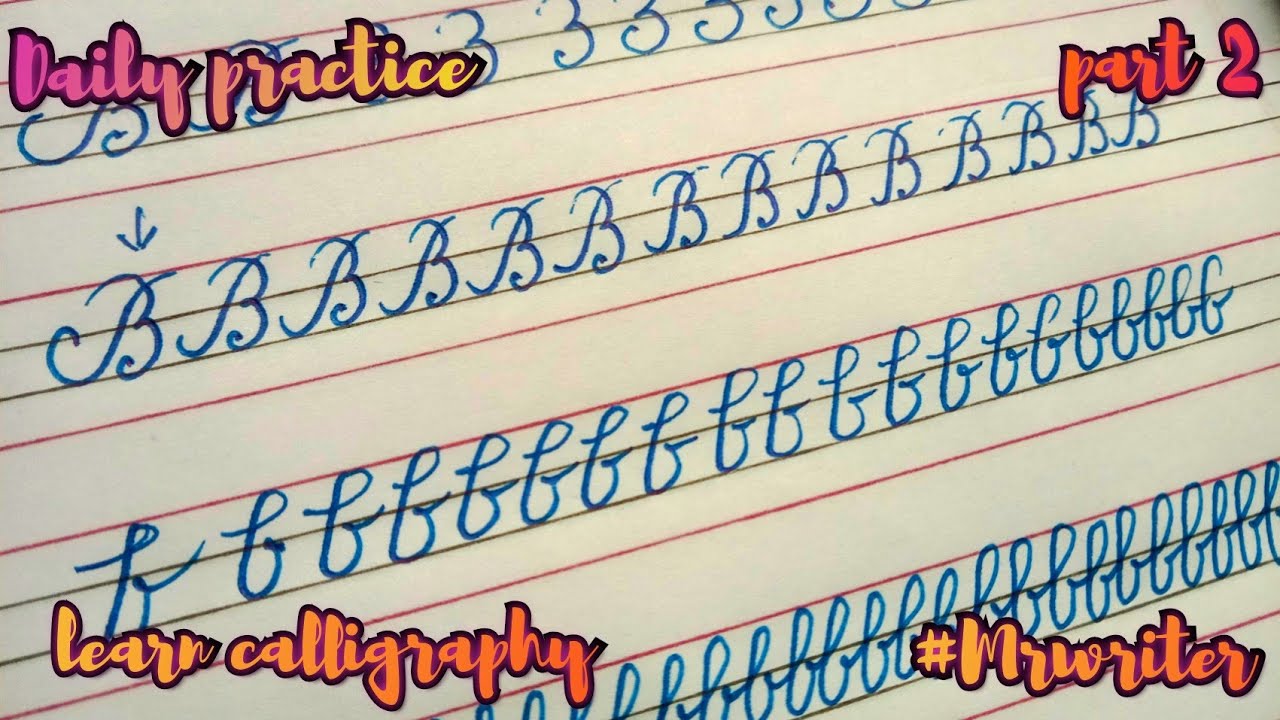 Daily practice
part 2
B B B B B B B B B B B B B B
b b b b b b b b b b b b b b b b b b b
learn calligraphy
#Mrwriter